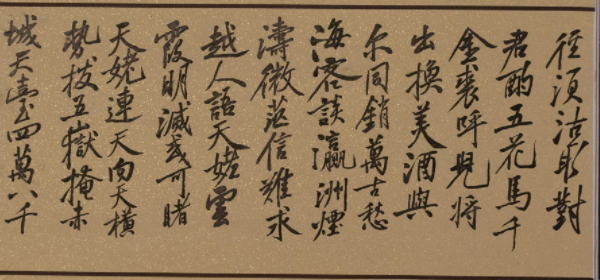 徑須沽取對
君酌五花馬千
金裘呼兒將
出換美酒與
尔同銷萬古愁
海客談瀛洲煙
濤微茫信難求
越人語天姥雲
霞明滅或可睹
天姥連天向天橫
勢拔五嶽掩赤
城天臺四萬八千